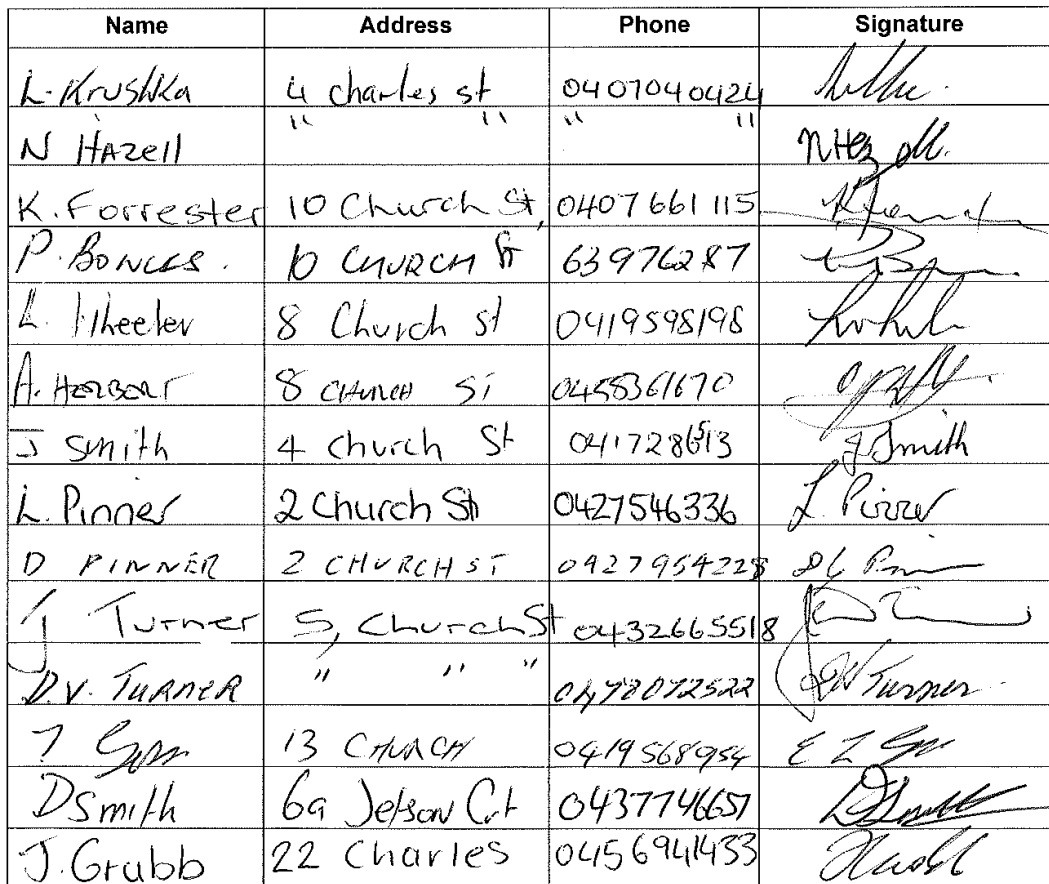 Name Address Phone Signature
L. Krushka 4 Charles st 0407040424
N HAZell " " " "
K. Forrester 10 Church St, 0407 661 115
P. BONCES. 10 CHURCH St 63976287
L. Wheeler 8 Church st 0419598198
A. HERBERT 8 CHURCH ST 0458361670
J Smith 4 Church St J Smith
L. Pinner 2 Church St 0427546336 L. Pinner
D PINNER 2 CHURCH ST 0427954228
J Turner 5, Church St 0432665518
D.V. TURNER " " " 0478072522 DV Turner
13 CHURCH 0419568954
D Smith 6a Jetson Crt 0437746657 D Smith
J. Grubb 22 Charles 0456941433